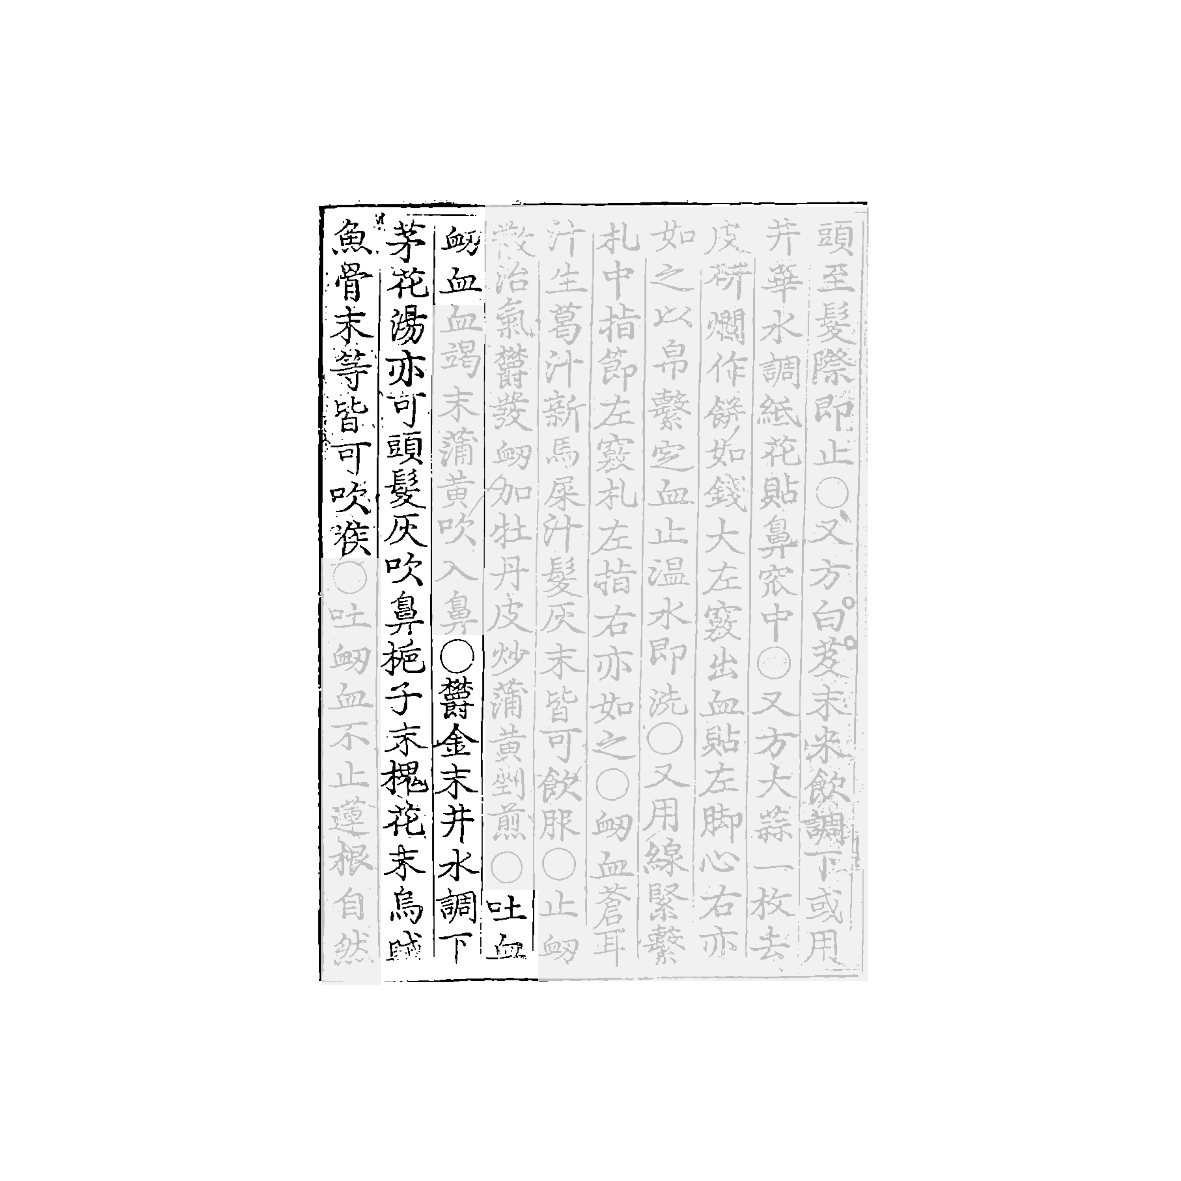 頭至髮際即止○又方白芨末米飲調下或用
井華水調紙花貼鼻窊中○又方大蒜一枚去
皮研爛作餅如錢大左竅出血貼左脚心右亦
如之以帛繫定血止温水即洗○又用線緊繫
札中指節左竅札左指右亦如之○衂血蒼耳
汁生葛汁新馬屎汁髮灰末皆可飲服○止衂
散治氣欝發衂加牡丹皮炒蒲黄剉煎○吐血
衂血血竭末蒲黄吹入鼻○欝金末井水調下
茅花湯亦可頭髮灰吹鼻梔子末槐花末烏賊
魚骨末等皆可吹猴○吐衂血不止蓮根自然